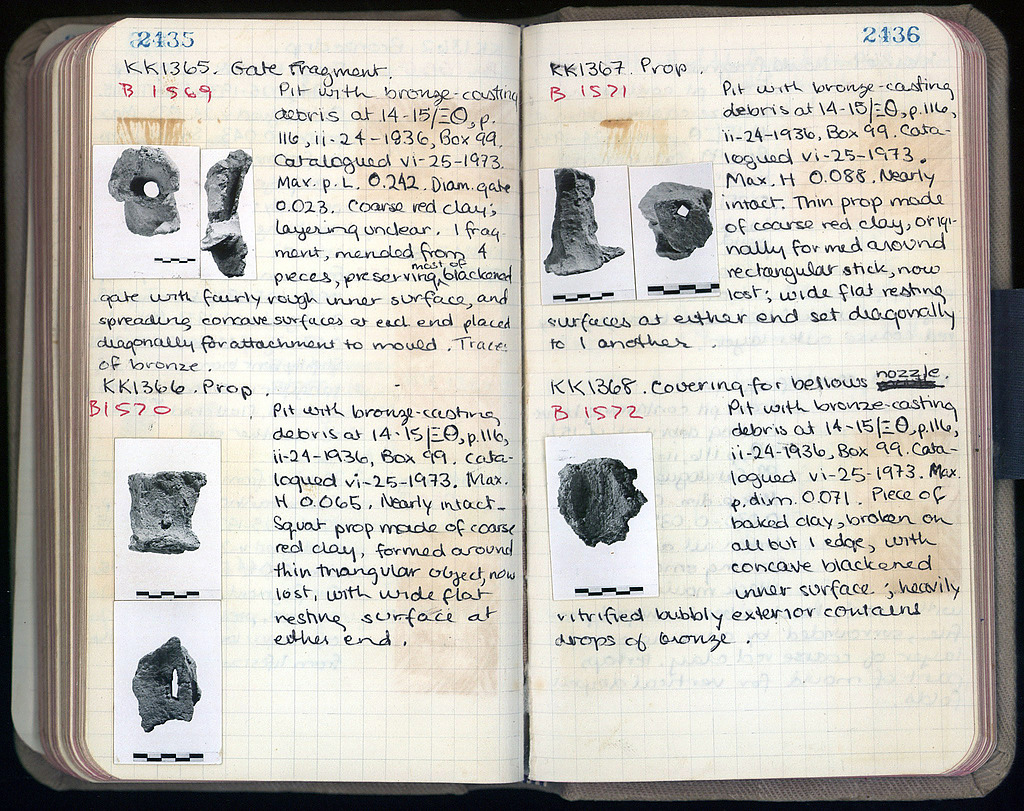 2435
KK1365. Gate Fragment.
B 1569
Pit with bronze-casting
debris at 14-15/ΞΘ, p.
116, ii-24-1936, Box 99.
Catalogued vi-25-1973.
Max. p. L. 0.242. Diam. gate
0.023. Coarse red clay;
layering unclear. 1 frag-
ment, mended from 4
pieces, preserving most of blackened
gate with fairly rough inner surface, and
spreading concave surfaces at each end placed
diagonally for attachment to mould. Traces
of bronze.
KK1366. Prop.
B1570
Pit with bronze-casting
debris at 14-15/ΞΘ, p.116,
ii-24-1936, Box 99. Cata-
logued vi-25-1973. Max.
H 0.065. Nearly intact.
Squat prop made of coarse
red clay, formed around
thin triangular object, now
lost, with wide flat
resting surface at
either end.
2436
KK1367. Prop.
B 1571
Pit with bronze-casting
debris at 14-15/ΞΘ, p.116,
ii-24-1936, Box 99. Cata-
logued vi-25-1973.
Max. H 0.088. Nearly
intact. Thin prop made
of coarse red clay, origi-
nally formed around
rectangular stick, now
lost; wide flat resting
surfaces at either end set diagonally
to 1 another.
KK1368. Covering for bellows nozzle.
B 1572
Pit with bronze-casting
debris at 14-15/ΞΘ, p.116,
ii-24-1936, Box 99. Cata-
logued vi-25-1973. Max.
p. dim. 0.071. Piece of
baked clay, broken on
all but 1 edge, with
concave blackened
inner surface; heavily
vitrified bubbly exterior contains
drops of bronze.